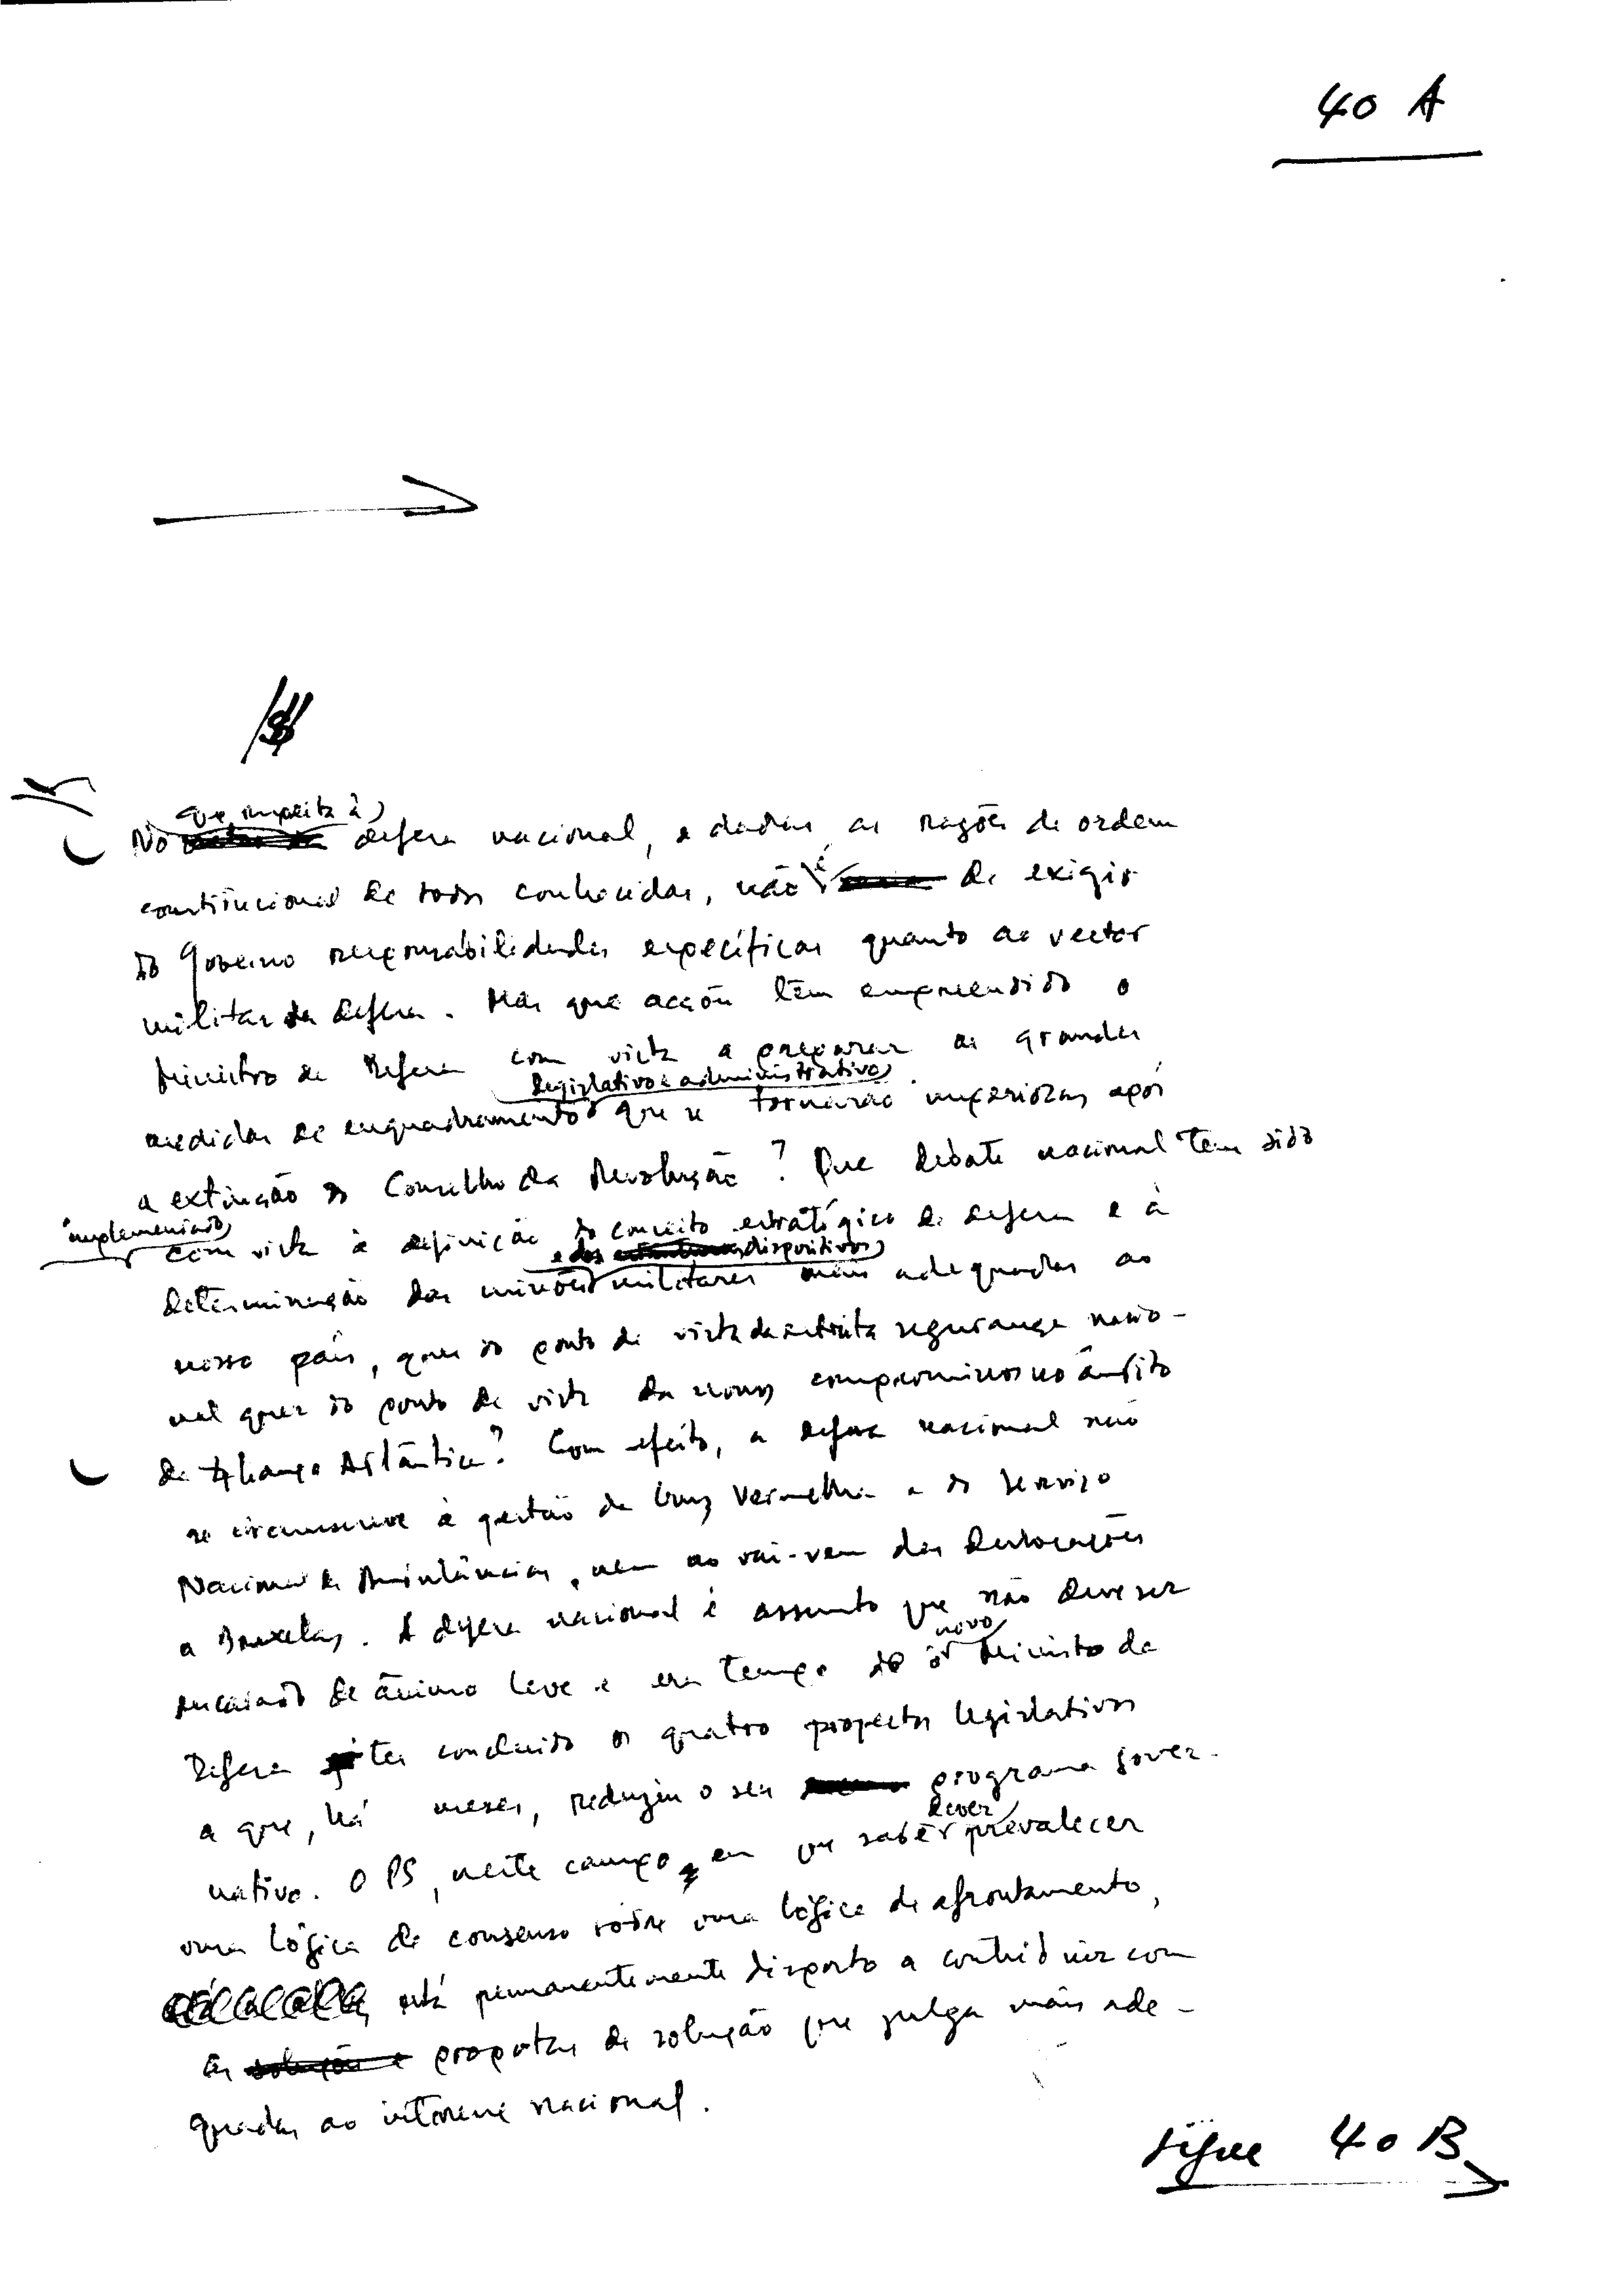 40 A
que respeita à
No defesa nacional, e dadas as razões de ordem
constitucional de todos conhecidas, não é de exigir
do Governo responsabilidades específicas quanto ao vector
militar da defesa. Mas que acções têm empreendido o
Ministro da Defesa com vista a preparar as grandes
legislativo e administrativo
medidas de enquadramento que se tornarão imperiosas após
a extinção do Conselho da Revolução? Que debate nacional tem sido
implementado
com vista à definição do conceito estratégico de defesa e à
e dos dispositivos
determinação das missões militares mais adequadas ao
nosso país, quer do ponto de vista da estrita segurança nacio-
nal quer do ponto de vista dos nossos compromissos no âmbito
da Aliança Atlântica? Com efeito, a defesa nacional não
se circunscreve à gestão da Cruz Vermelha e do Serviço
Nacional de Ambulâncias, nem ao vai-vem das deslocações
a Bruxelas. A defesa nacional é assunto que não deve ser
novo
encarado de ânimo leve e era tempo de o Ministro da
Defesa ter concluido os quatro projectos legislativos
a que, há meses, reduziu o seu programa gover-
dever
nativo. O PS, neste campo, em que sabe prevalecer
uma lógica de consenso sobre uma lógica de afrontamento,
está permanentemente disposto a contribuir com
as propostas de solução que julga mais ade-
quadas ao interesse nacional.
segue 40 B